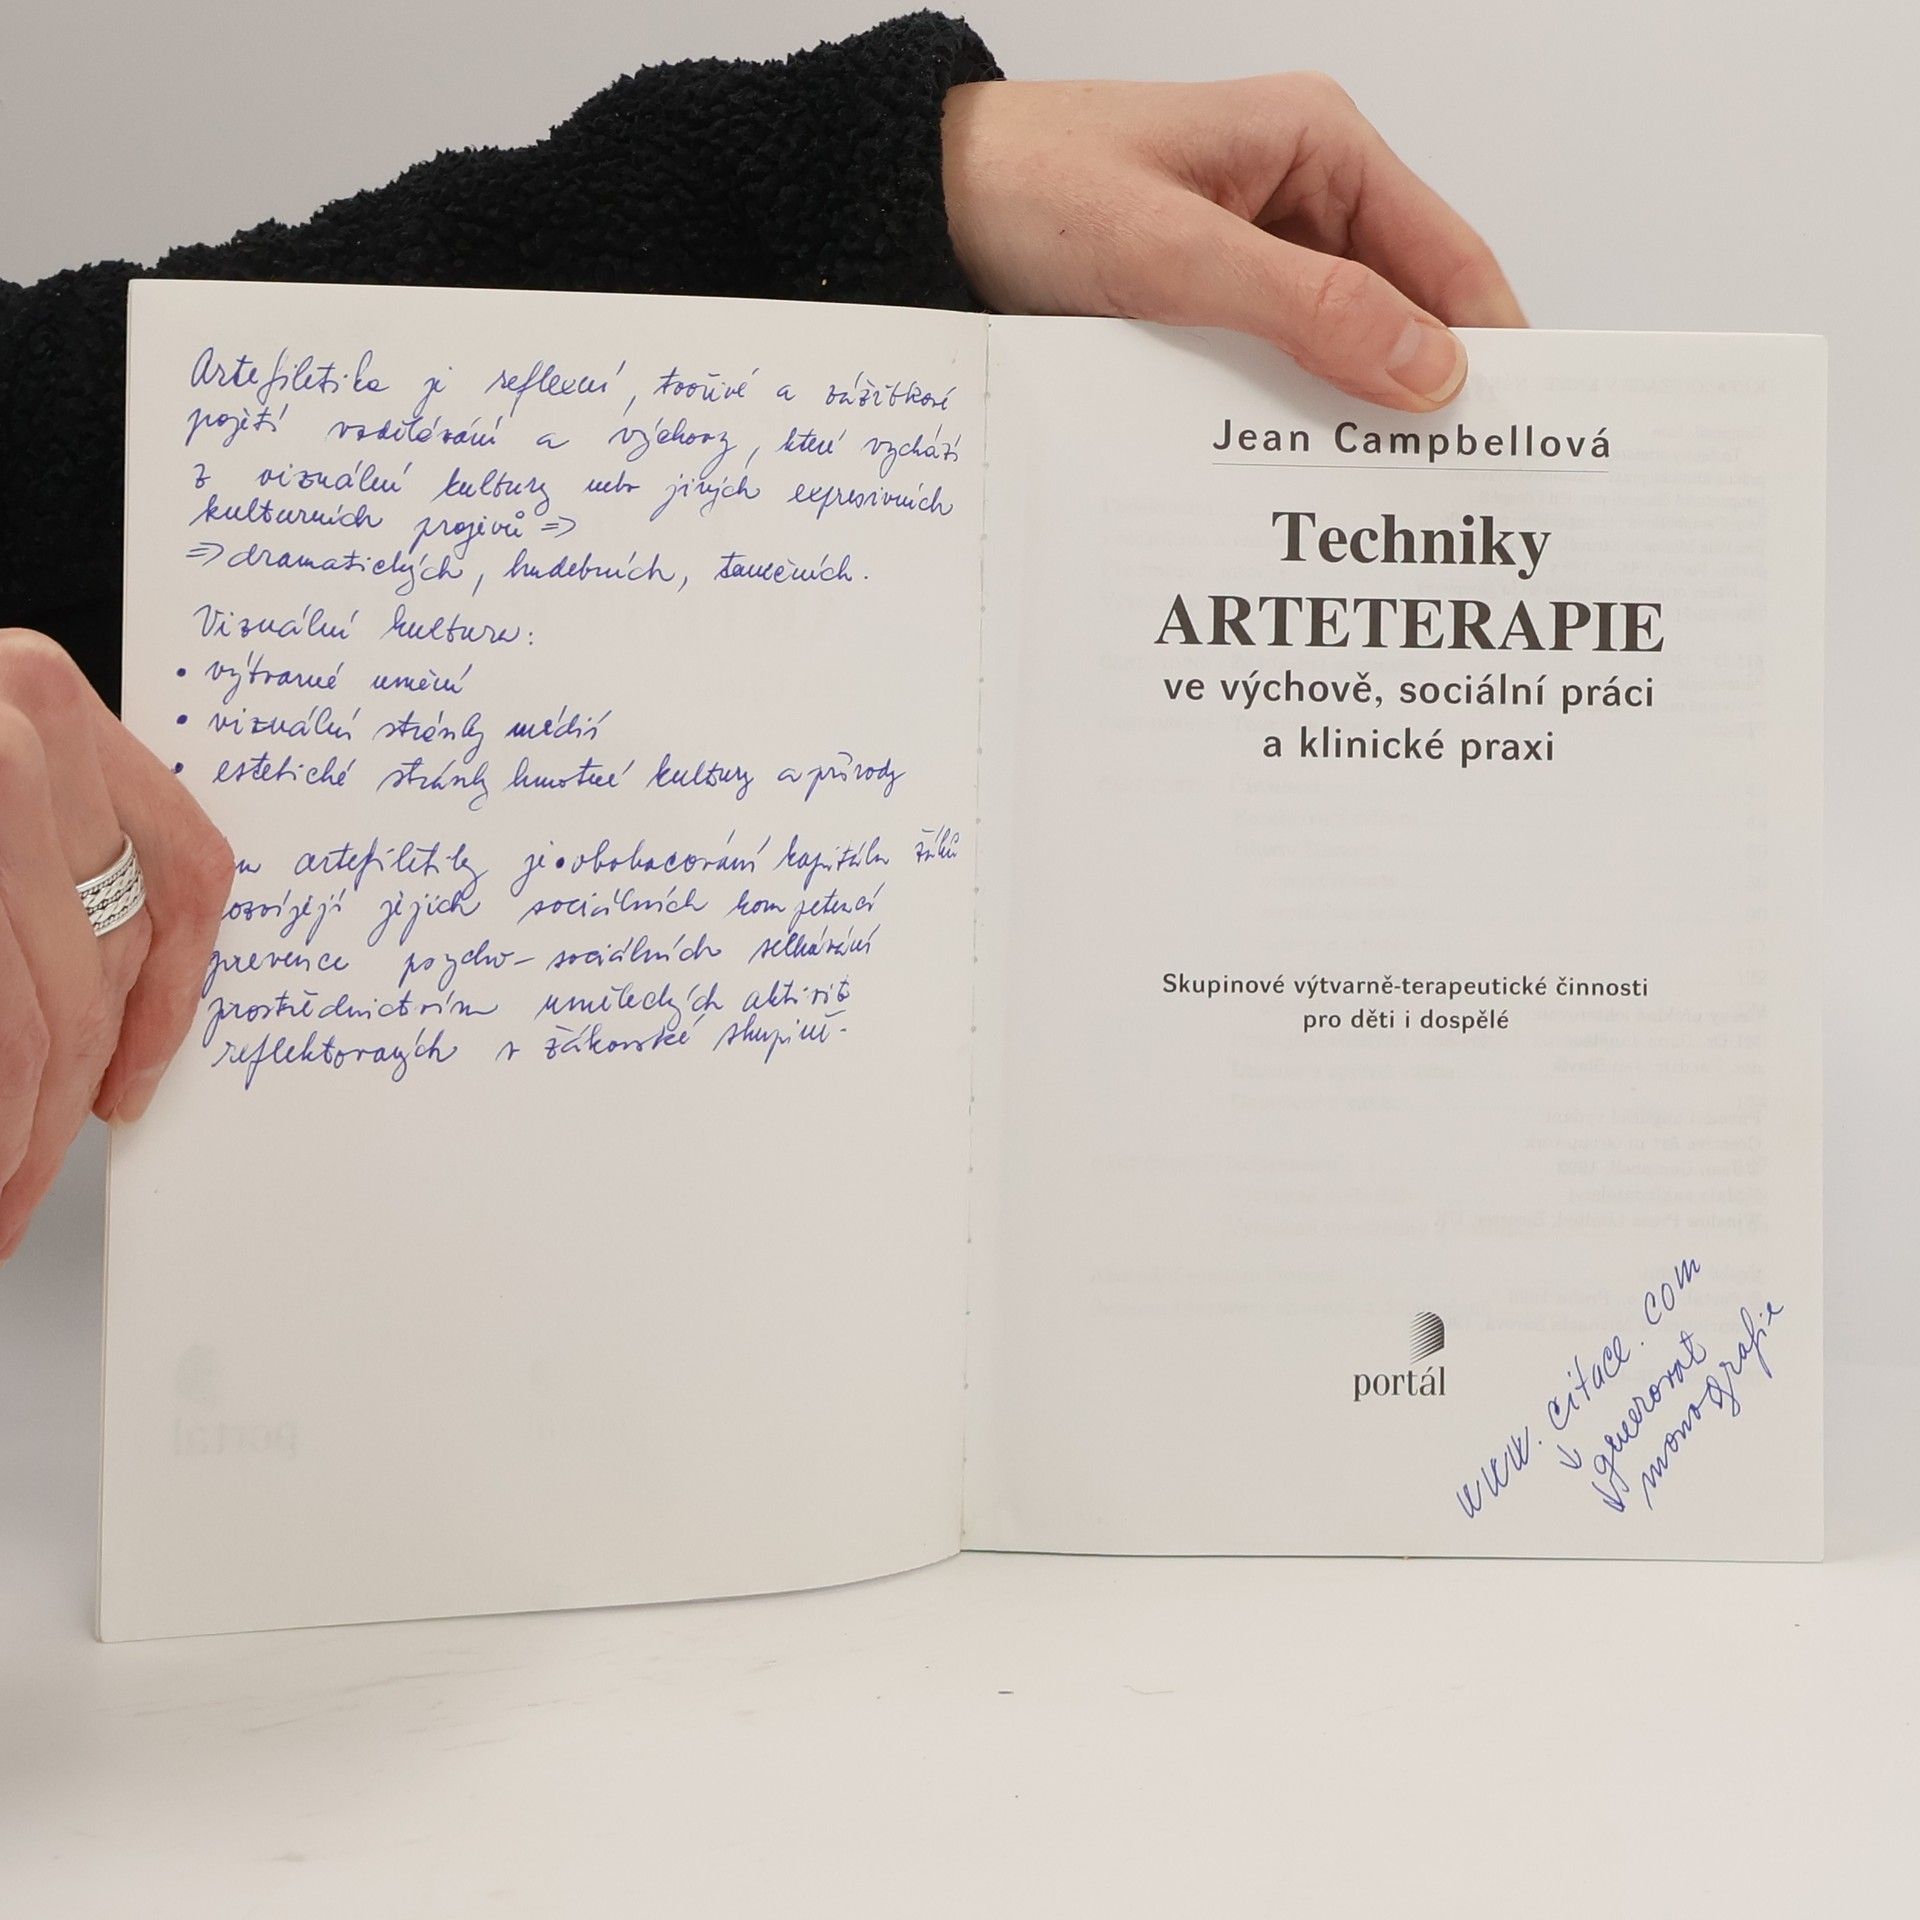 Artefiletika je reflexní, tvořivé a zážitkové
pojetí vzdělávání a výchovy, které vychází
z vizuální kultury nebo jiných expresivních
kulturních projevů =>
=> dramatických, hudebních, tanečních.
Vizuální kultura:
• výtvarné umění
• vizuální stránky médií
• estetické stránky hmotné kultury a přírody
artefiletiky je • obohacování kapitálu žáků
jejich sociálních kompetencí
prevence psycho-sociálních selhávání
prostřednictvím uměleckých aktivit
reflektovaných v žákovské skupině.
Jean Campbellová
Techniky
ARTETERAPIE
ve výchově, sociální práci
a klinické praxi
Skupinové výtvarně-terapeutické činnosti
pro děti i dospělé
portál
www.citace.com
↓
↓ generovat
monografie